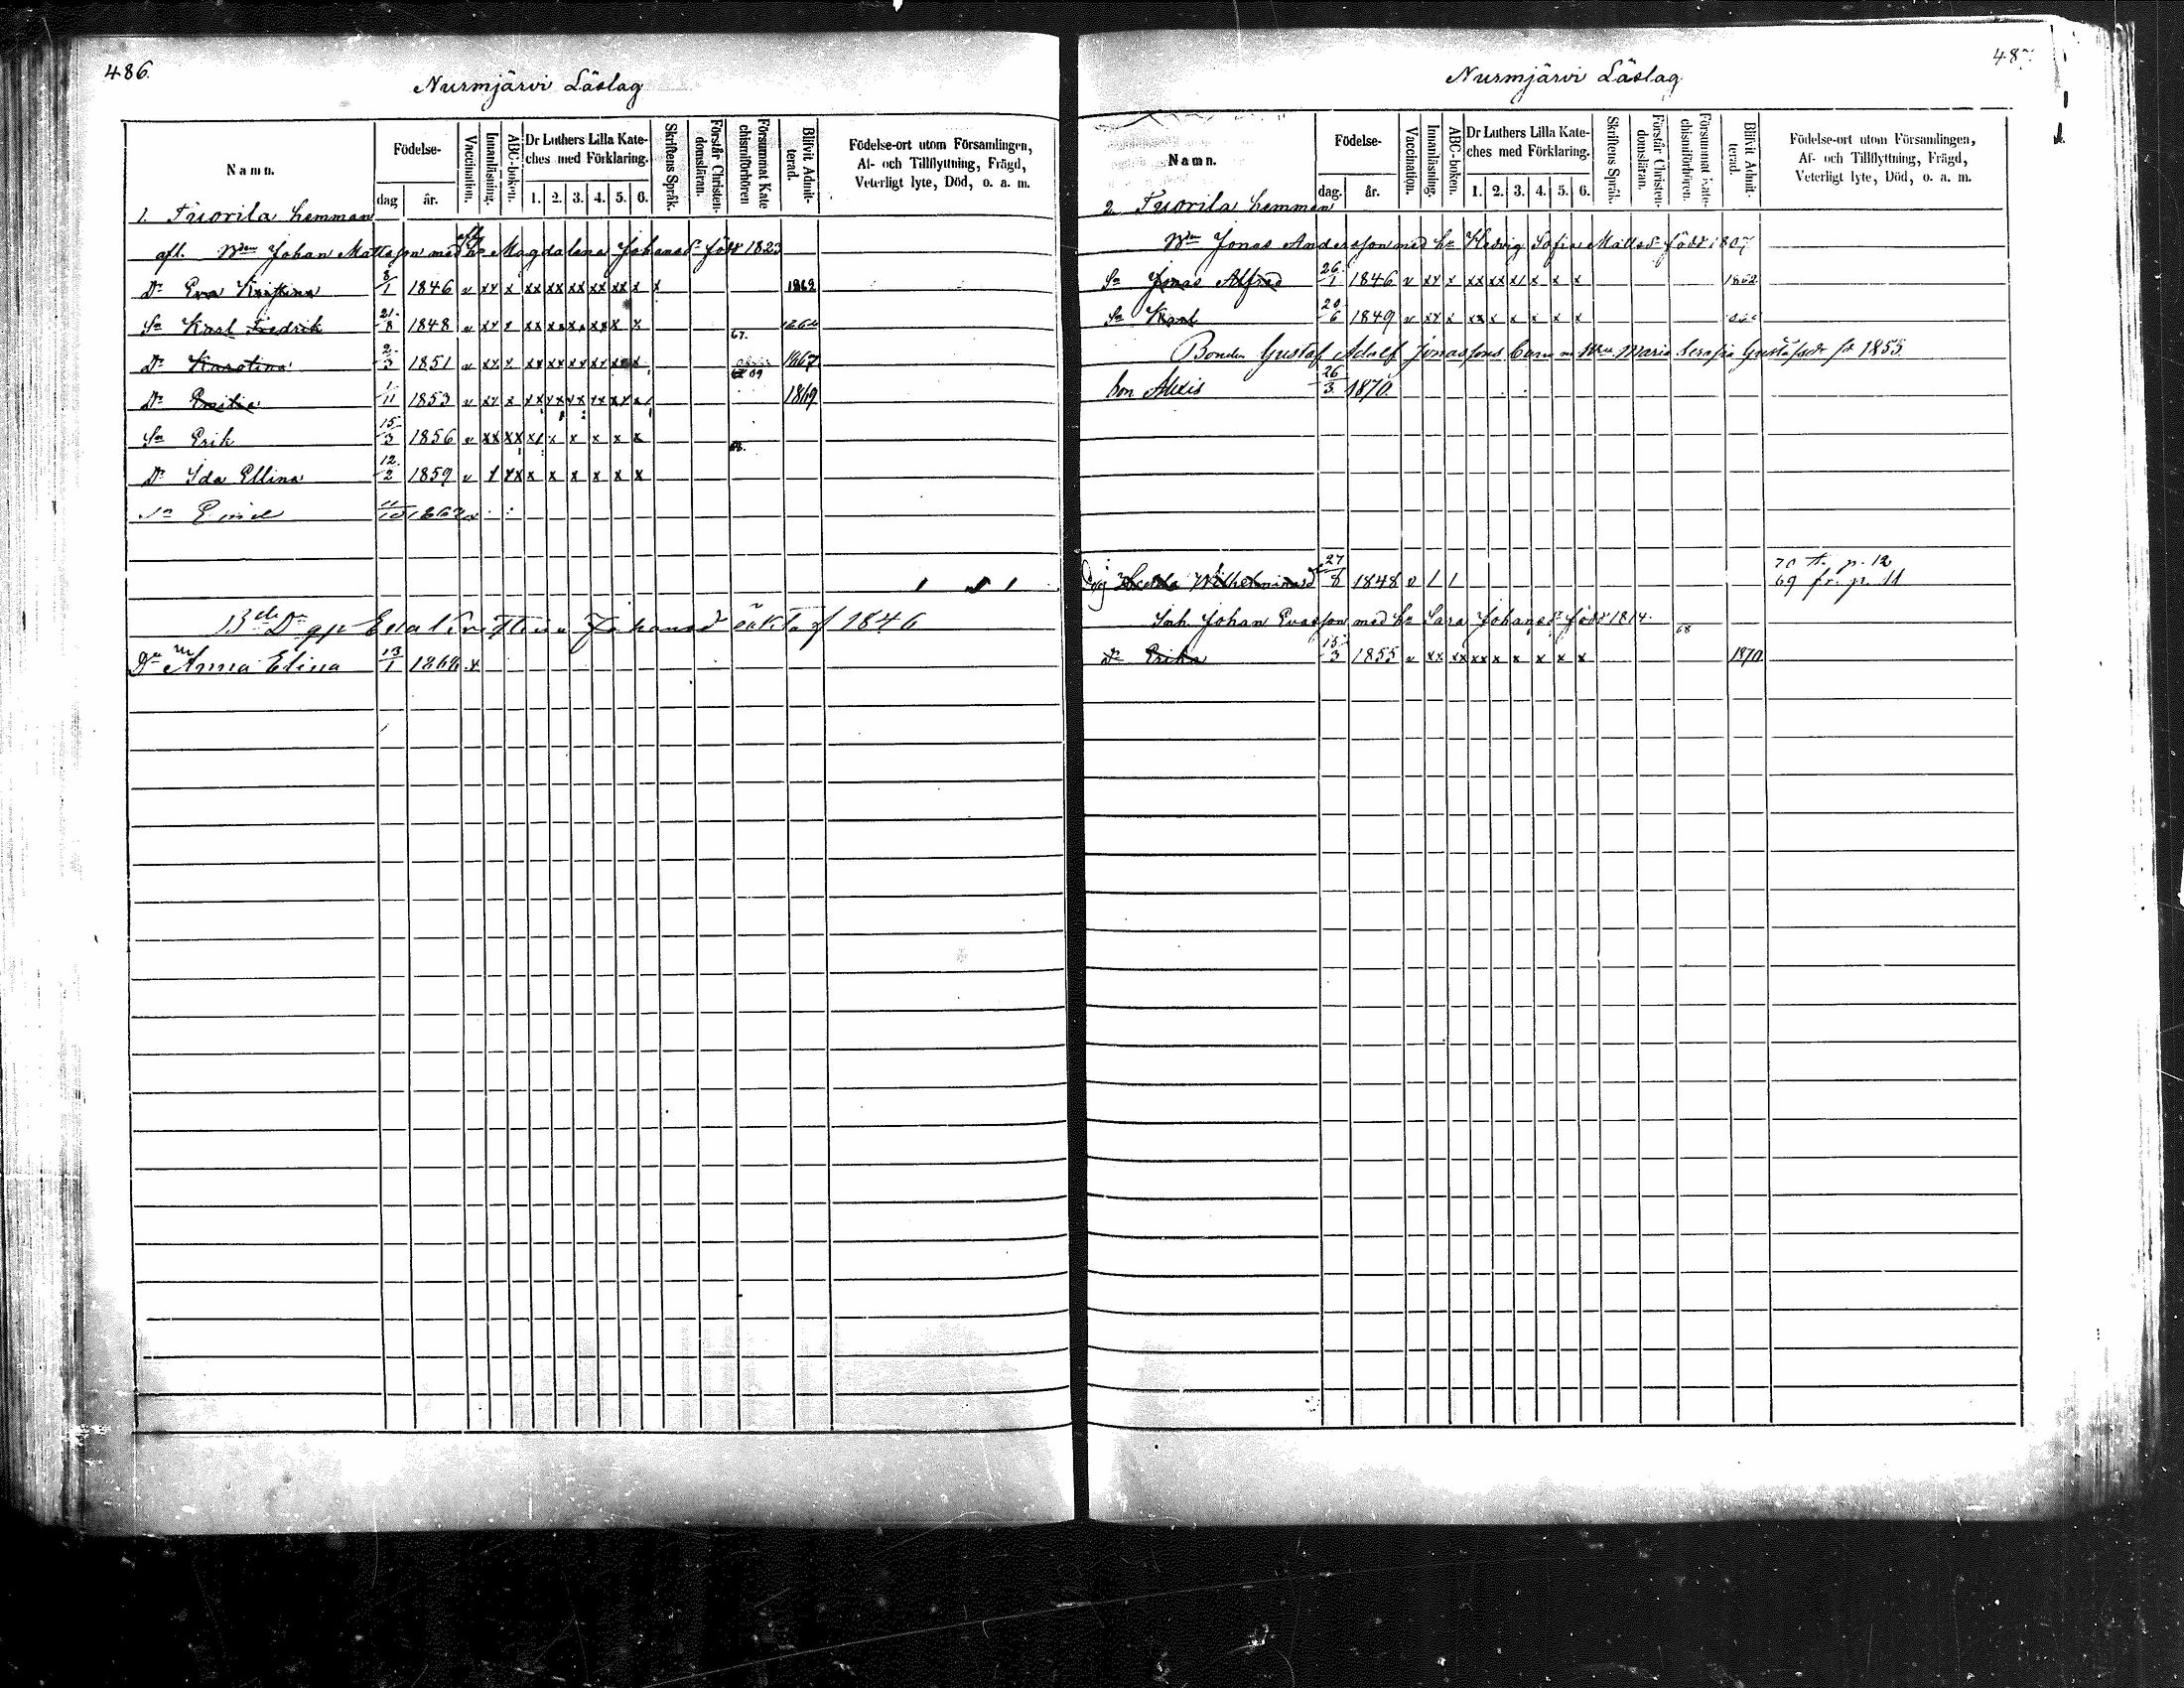 486.
Nurmjärvi Läslag
Namn.
Födelse-
dag
år.
Vaccination.
Innanläsning.
ABC-boken.
Dr Luthers Lilla Kate-
ches med Förklaring.
1. 2. 3. 4. 5. 6.
Skriftens Språk.
Förstår Christen-
domsläran.
Försummat Kate
chismiförhören
Blifvit Admit-
terad.
Födelse-ort utom Församlingen,
Af- och Tillflyttning, Frägd,
Veterligt lyte, Död, o. a. m.
1. Tuorila hemman
afl. Johan Mattsson med afl. hu Magdalena Johansd född 1823
Dr Eva Kristina 8/1 1846 v xx x xx xx xx xx xx x x 1862
Sn Karl Fredrik 21/8 1848 v 67.
Dr Karolina 2/3 1851 v 69 1867
Dr Emilie 1/11 1853 v 1869
Sn Erik 15/3 1856 v xx xx x1 x x x x x
Dr Ida Ellina 12/2 1859 v x x x x x x
Sn Emil 1862
gp Eva Kristina Johansd 1846
Dr Anna Elina 13/1 1868 x
487
Nurmjärvi Läslag
Namn.
Födelse-
dag.
år.
Vaccination.
Innanläsning.
ABC-boken.
Dr Luthers Lilla Kate-
ches med Förklaring.
1. 2. 3. 4. 5. 6.
Skriftens Språk.
Förstår Christen-
domsläran.
Försummat Kate-
chismiförhören.
Blifvit Admit-
terad.
Födelse-ort utom Församlingen,
Af- och Tillflyttning, Frägd,
Veterligt lyte, Död, o. a. m.
2. Tuorila hemman
Jonas Andersson med hu Hedvig Sofia Mattsdr född 1807
Sn Jonas Alfred 26/1 1846 v xx x xx xx x1 x x x 1862
Sn Karl 20/6 1849 v xx x xx x x x x x
Bonden Gustaf Adolf Jonassons barn m Maria Serafia Gustafsdr 1853.
Son Alexis 26/3 1870.
Wilhelmina 27/8 1848 v 1 1 70 t. p. 12
69 fr. p. 11
Inh Johan Evasson med hu Sara Johansdr född 1814.
68
Dr Erika 15/3 1855 v xx xx xx x x x x x 1870